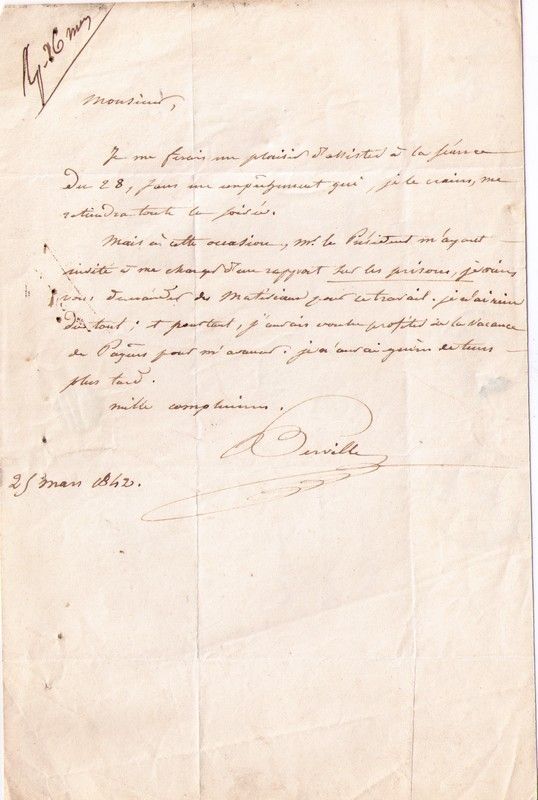 Rép. 26 mars
Monsieur,
Je me ferais un plaisir d'assister à la séance
du 28, sans un empêchement qui, je le crains, me
retiendra toute la soirée.
Mais à cette occasion, Mr. le Président m'ayant
invité à me charger d'un rapport sur les prisons, je viens
vous demander des matériaux pour ce travail. je n'ai rien
du tout; et pourtant, j'aurais voulu profiter de la vacance
de Pâques pour m'avancer. je n'aurai guères de tems
plus tard.
mille complimens.
Berville
25 mars 1842.